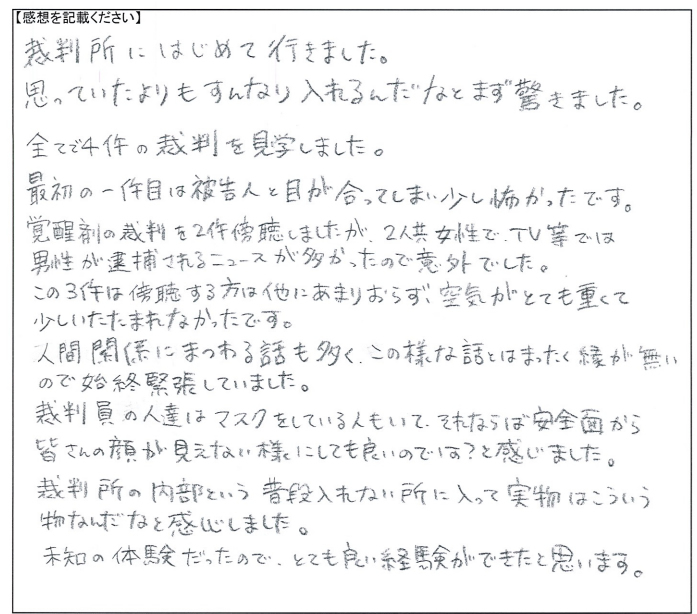 【感想を記載ください】
裁判所にはじめて行きました。
思っていたよりもすんなり入れるんだなとまず驚きました。
全てで4件の裁判を見学しました。
最初の一件目は被告人と目が合ってしまい少し怖かったです。
覚醒剤の裁判を2件傍聴しましたが、2人共女性で、TV等では
男性が逮捕されるニュースが多かったので意外でした。
この3件は傍聴する方は他にあまりおらず、空気がとても重くて
少しいたたまれなかったです。
人間関係にまつわる話も多く、この様な話とはまったく縁が無い
ので始終緊張していました。
裁判員の人達はマスクをしている人もいて、それならば安全面から
皆さんの顔が見えない様にしても良いのでは?と感じました。
裁判所の内部という普段入れない所に入って実物はこういう
物なんだなと感心しました。
未知の体験だったので、とても良い経験ができたと思います。